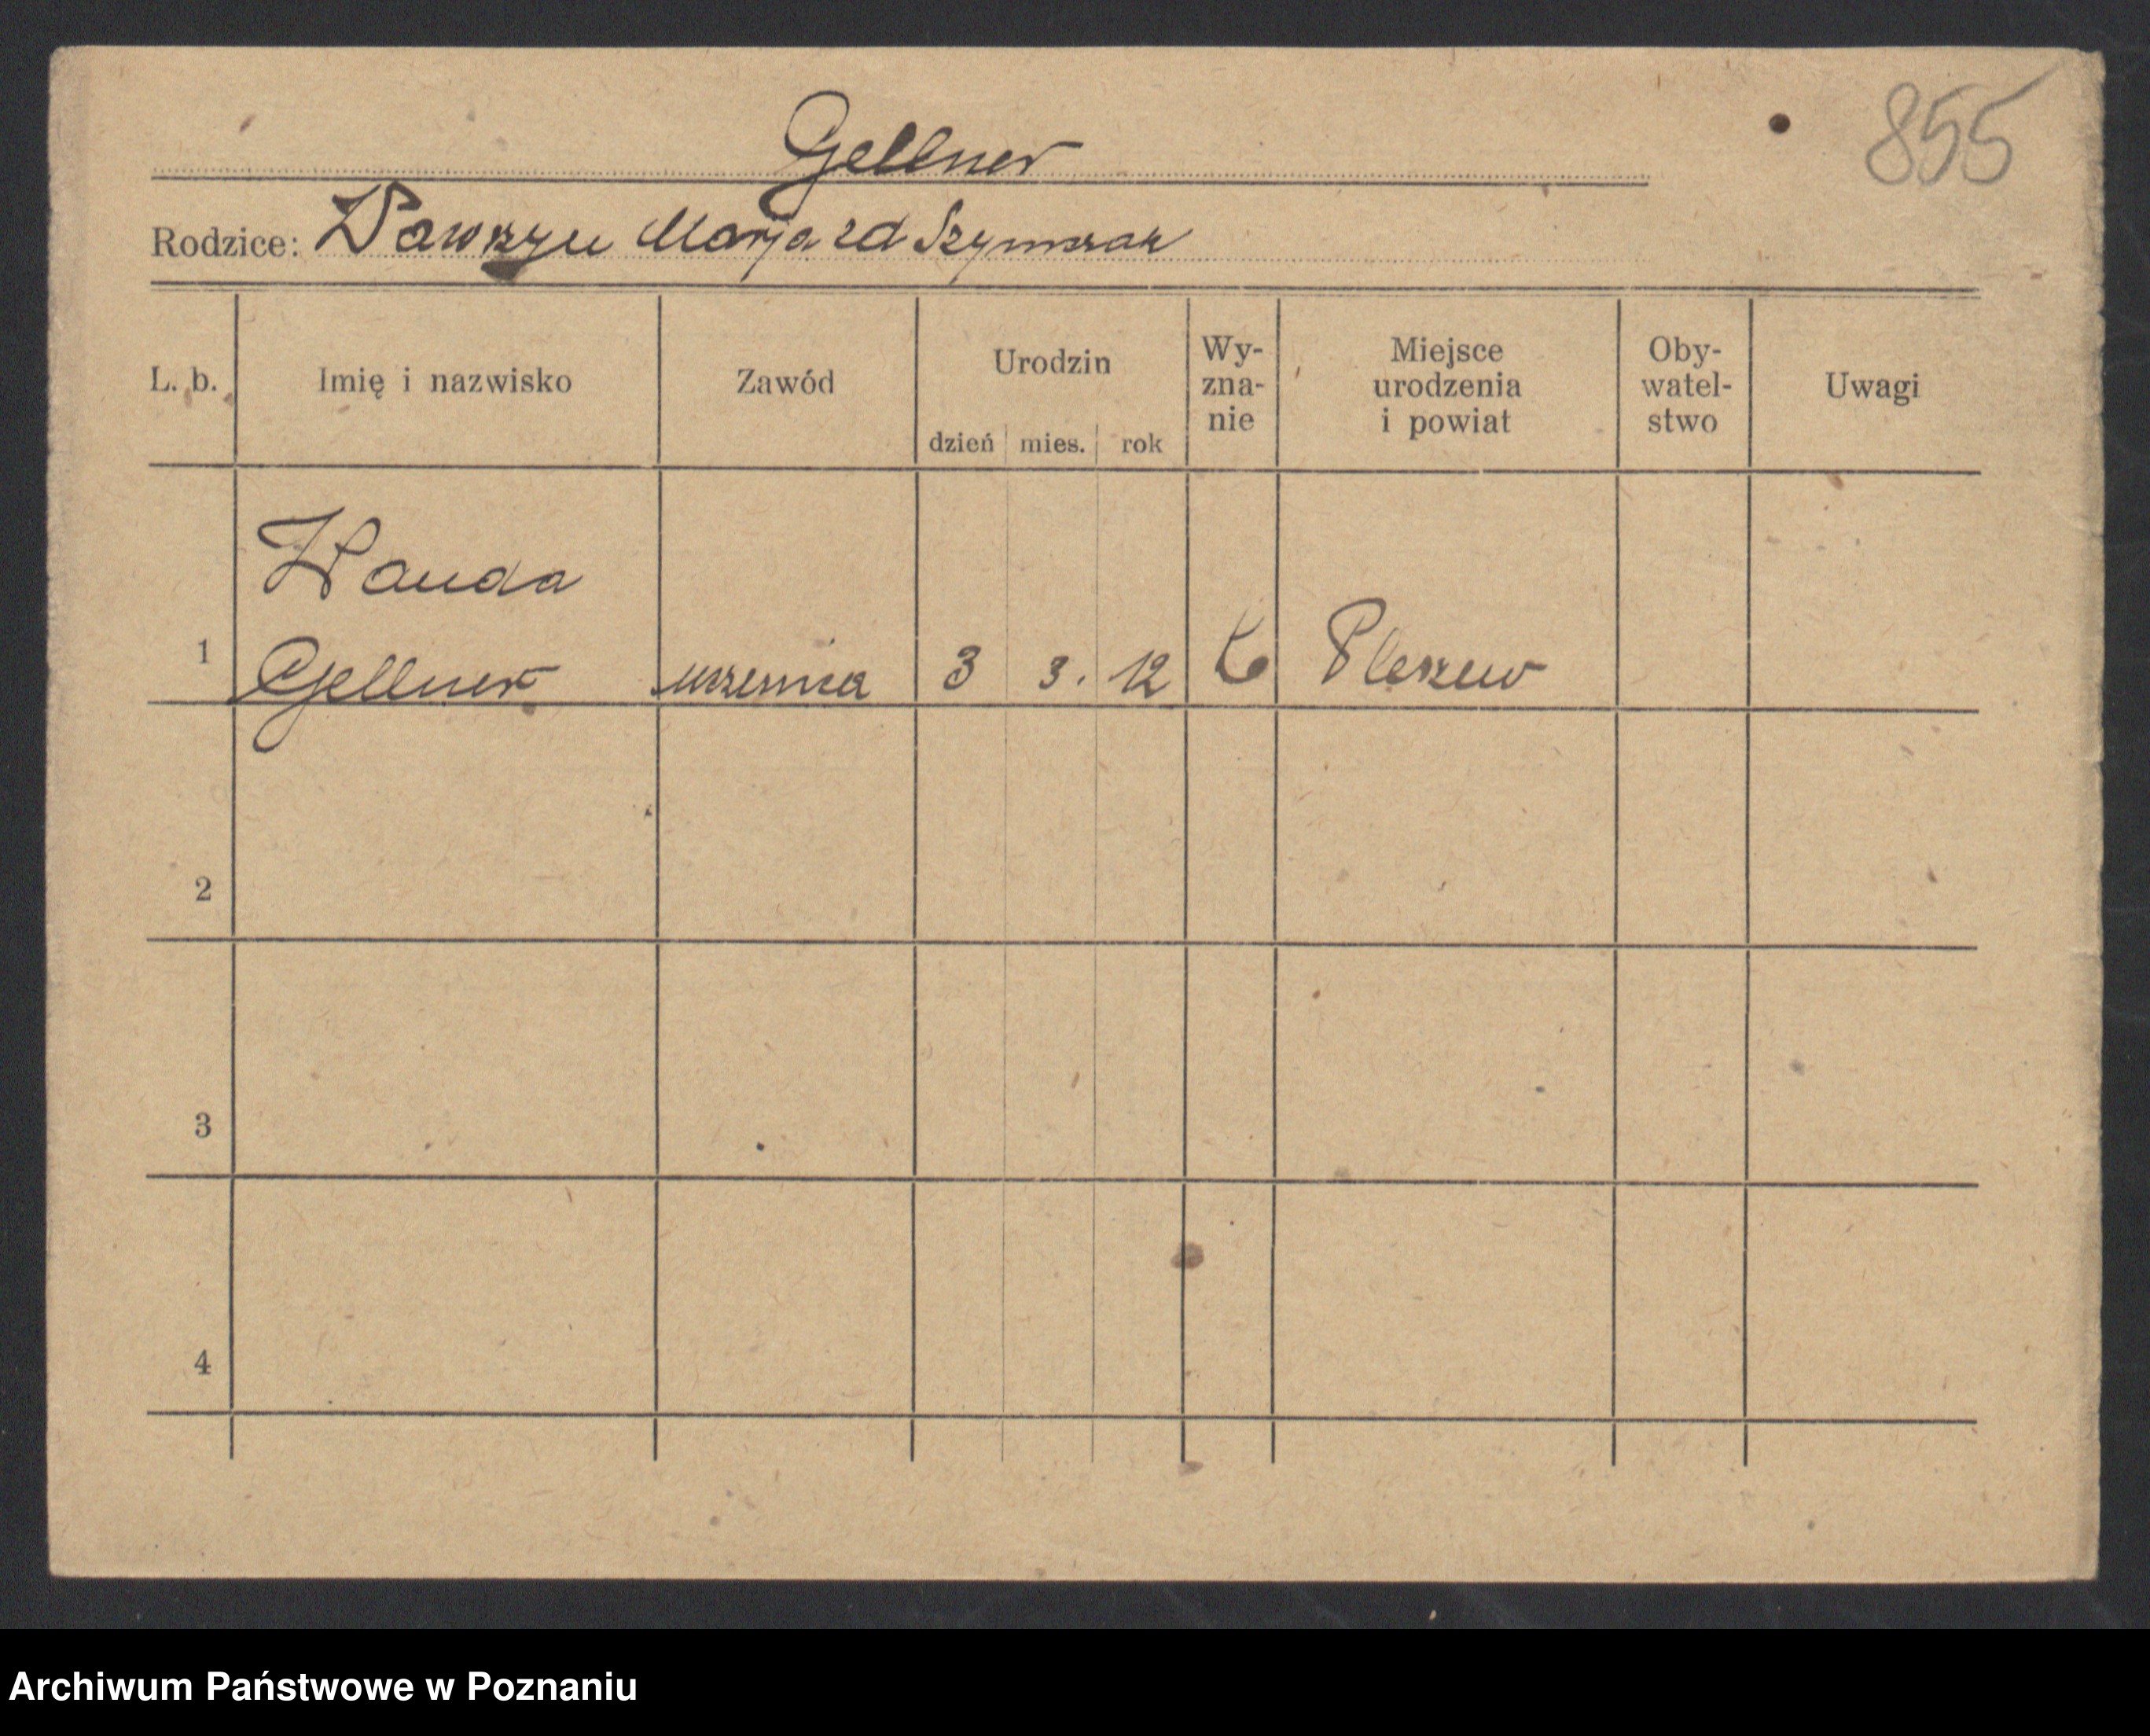 855
Gellner
Rodzice: Wawrzyn Marja zd Szymczak
L. b.
Imię i nazwisko
Zawód
Urodzin
dzień mies. rok
Wy-
zna-
nie
Miejsce
urodzenia
i powiat
Oby-
watel-
stwo
Uwagi
Wanda
1 Gellner uczenica 3 3. 12 Pleszew
2
3
4
Archiwum Państwowe w Poznaniu